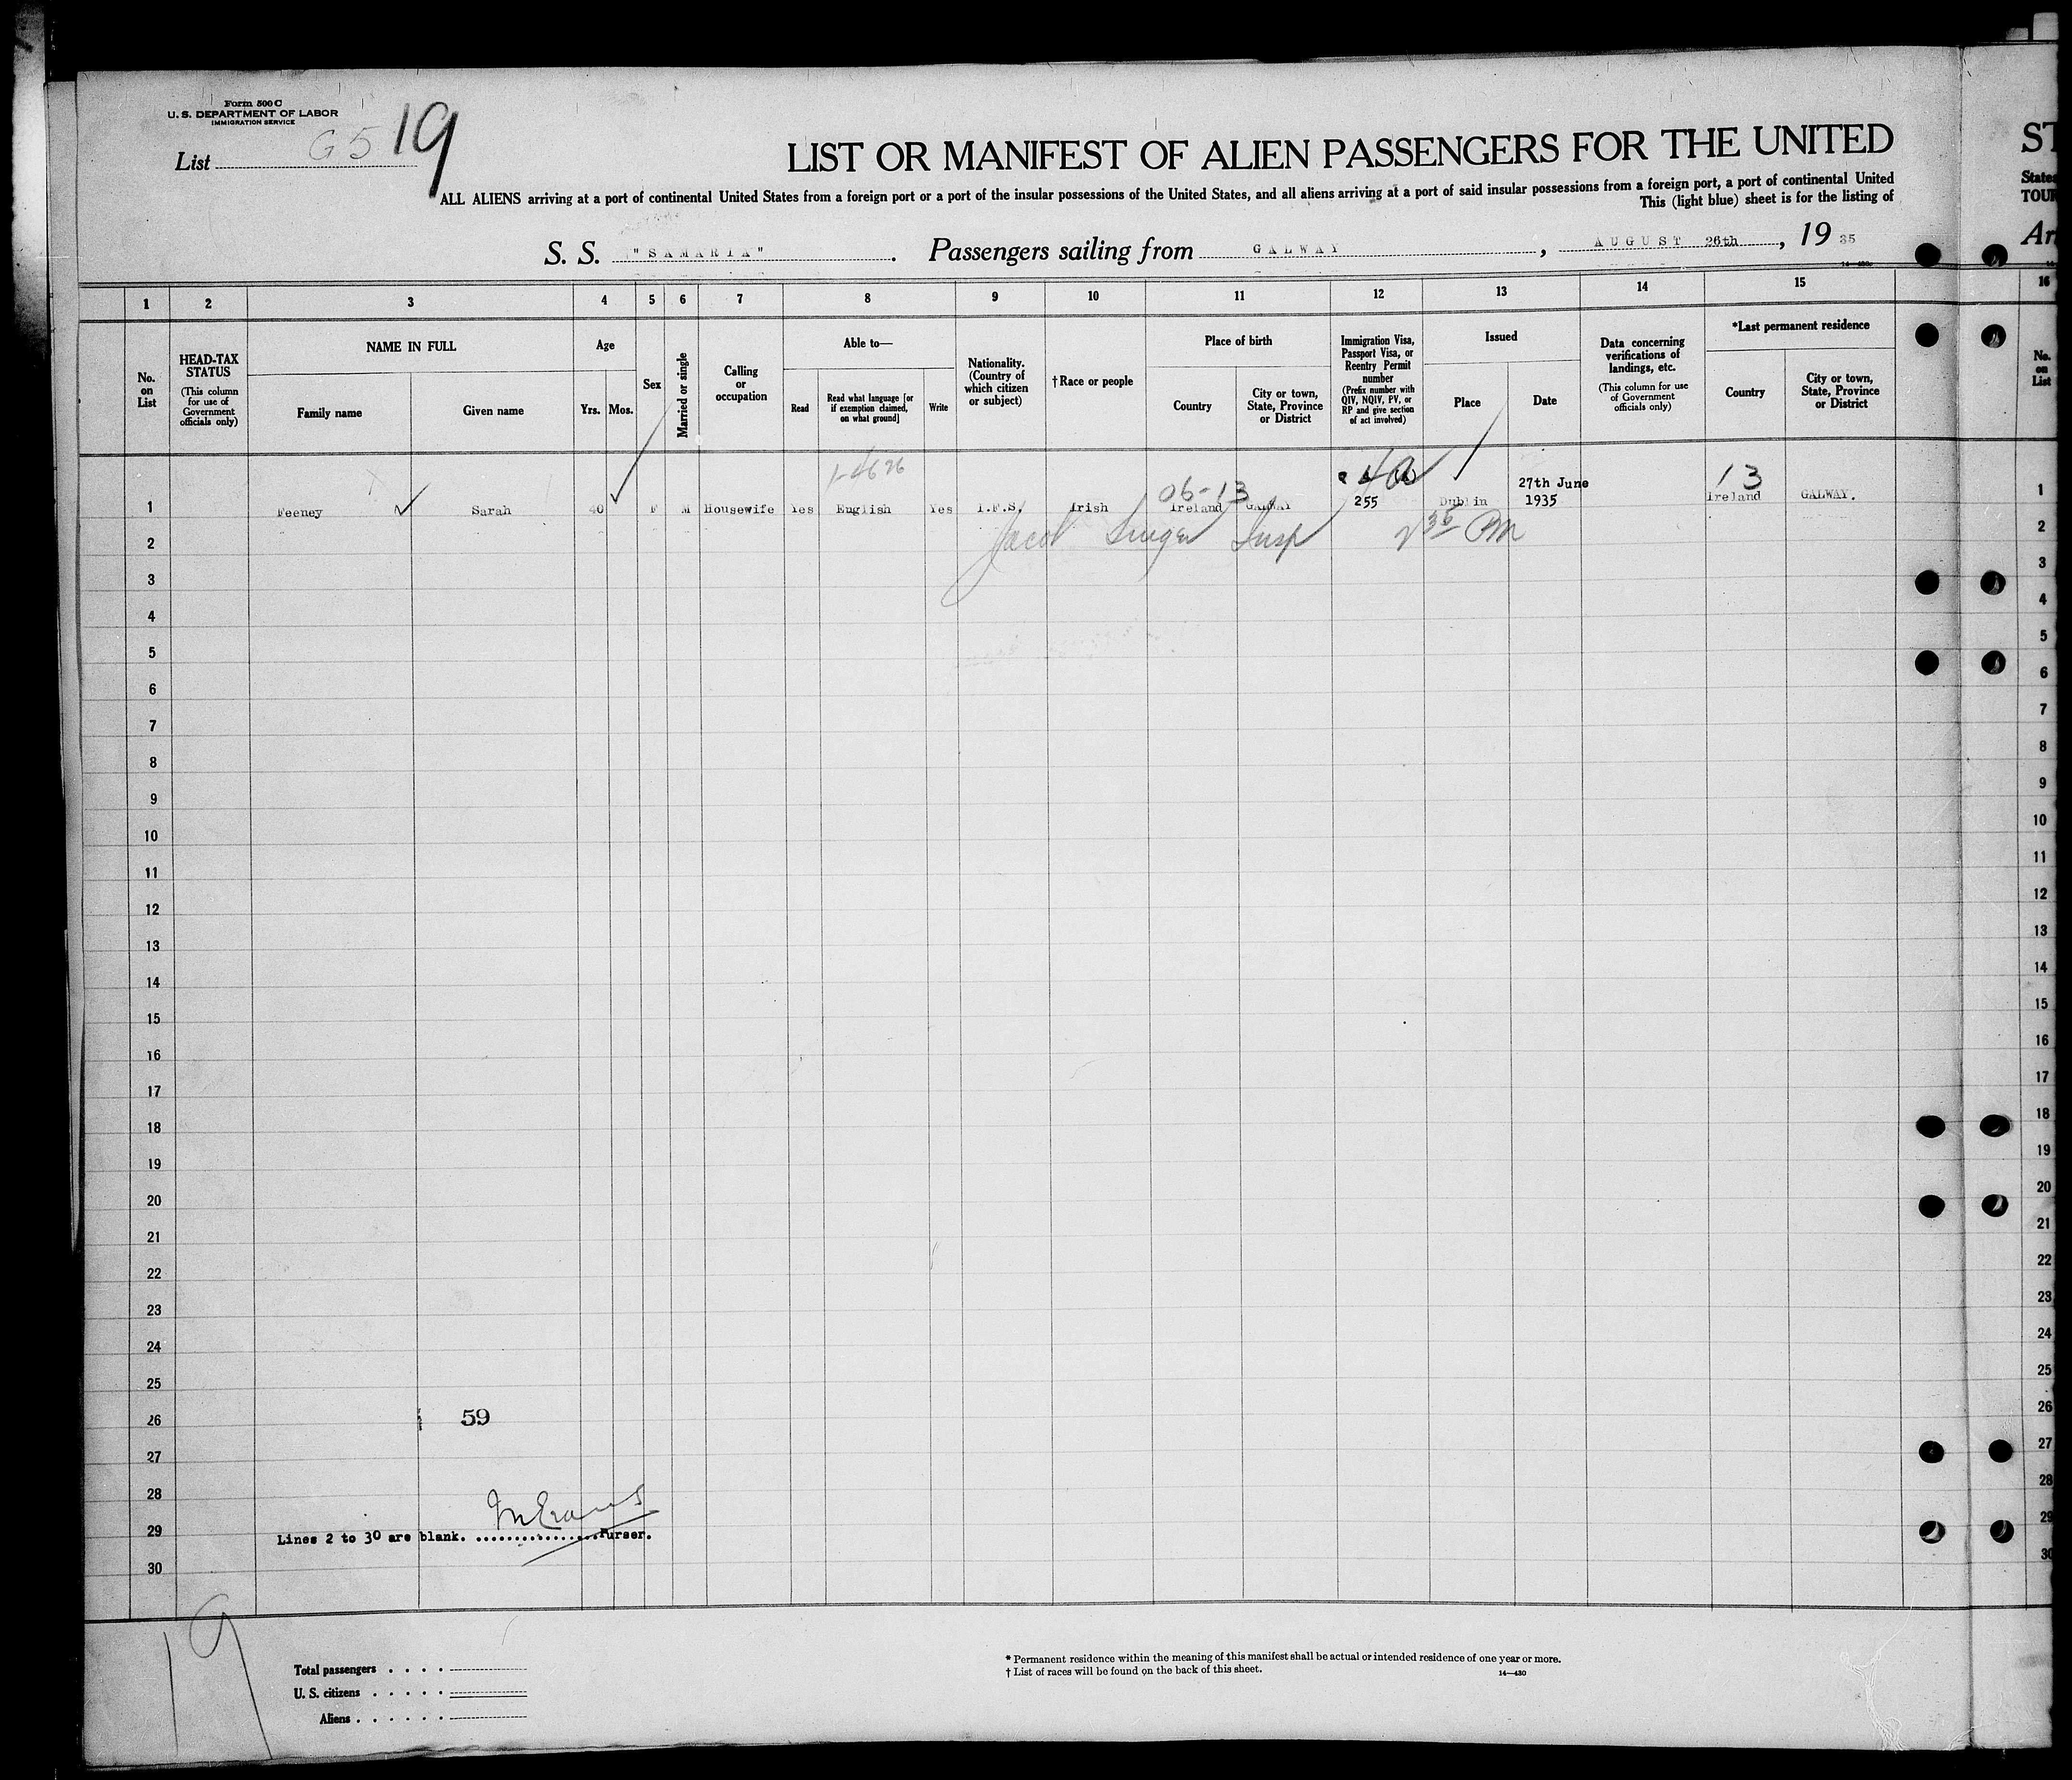 Form 500 C
U. S. DEPARTMENT OF LABOR
IMMIGRATION SERVICE
List G5 19
LIST OR MANIFEST OF ALIEN PASSENGERS FOR THE UNITED
ST
ALL ALIENS arriving at a port of continental United States from a foreign port or a port of the insular possessions of the United States, and all aliens arriving at a port of said insular possessions from a foreign port, a port of continental United
States
This (light blue) sheet is for the listing of
TOUR
S. S. "SAMARIA". Passengers sailing from GALWAY, AUGUST 26th, 19 35
Ar
14—430
1 2 3 4 5 6 7 8 9 10 11 12 13 14 15 16
No. on List
HEAD-TAX STATUS (This column for use of Government officials only)
NAME IN FULL
Family name
Given name
Age
Yrs. Mos.
Sex
Married or single
Calling or occupation
Able to—
Read
Read what language [or if exemption claimed, on what ground]
Write
Nationality. (Country of which citizen or subject)
†Race or people
Place of birth
Country
City or town, State, Province or District
Immigration Visa, Passport Visa, or Reentry Permit number (Prefix number with QIV, NQIV, PV, or RP and give section of act involved)
Issued
Place
Date
Data concerning verifications of landings, etc. (This column for use of Government officials only)
*Last permanent residence
Country
City or town, State, Province or District
No. on List
06-13
27th June
13
1 Feeney Sarah 40 F M Housewife Yes English Yes I.F.S. Irish Ireland GALWAY 255 Dublin 1935 Ireland GALWAY. 1
2 Jacob Insp 2 35 PM 2
3 3
4 4
5 5
6 6
7 7
8 8
9 9
10 10
11 11
12 12
13 13
14 14
15 15
16 16
17 17
18 18
19 19
20 20
21 21
22 22
23 23
24 24
25 25
26 59 26
27 27
28 28
29 Lines 2 to 30 are blank. ................Purser. 29
30 30
19
Total passengers . . . .
U. S. citizens . . . . .
Aliens . . . . . .
* Permanent residence within the meaning of this manifest shall be actual or intended residence of one year or more.
† List of races will be found on the back of this sheet.
14—430